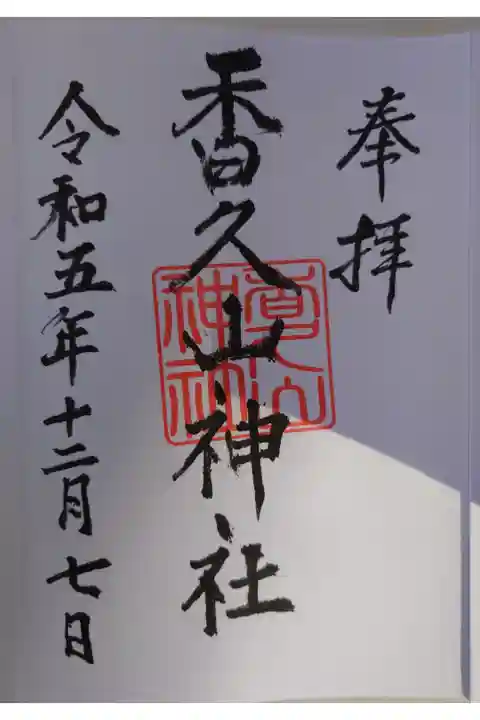 奉拝
香久山神社
令和五年十二月七日